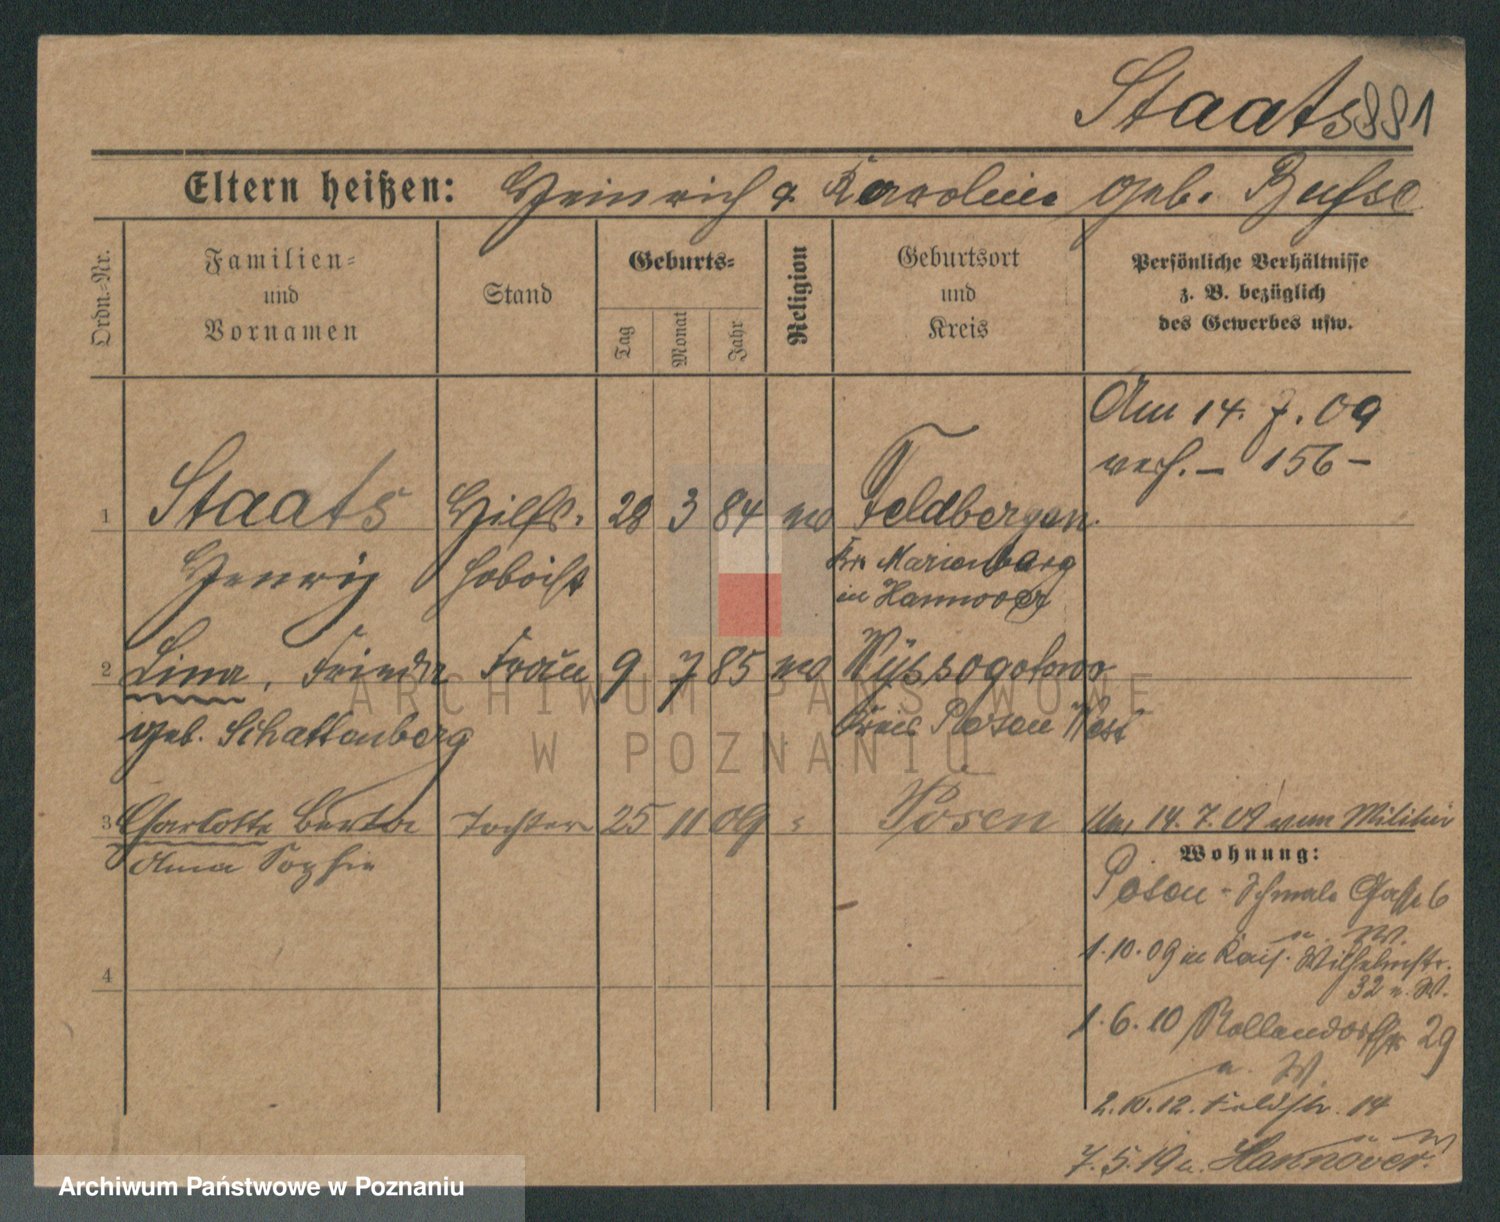 Staats 881
Eltern heißen: Heinrich u. Karoline geb. Busse
Ordn.-Nr.
Familien-
und
Vornamen
Stand
Geburts-
Tag
Monat
Jahr
Religion
Geburtsort
und
Kreis
Persönliche Verhältnisse
z. B. bezüglich
des Gewerbes usw.
Am 14. 7. 09
verh. – 156 –
1 Staats Hilfs- 28 3 84 ev Feldbergen
Henry hoboist Kr. Marienburg
in Hannover
2 Lina, Frieda Frau 9 7 85 ev Wyssogotowo
geb. Schattenberg Kreis Posen West
3 Charlotte Berta Tochter 25 11 09 " Posen
Anna Sophie
Am 14. 7. 09 vom Militär
Wohnung:
Posen - Schmale Gasse 6
u. W.
1.10.09 in Kais. Wilhelmstr.
32 u. W.
4
1.6.10 29
u. W.
2.10.12. Feldstr. 14
7.5.19 n. Hannover.
ARCHIWUM PAŃSTWOWE
W POZNANIU
Archiwum Państwowe w Poznaniu